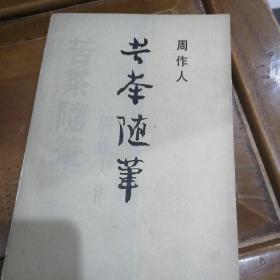 周作人
苦茶随筆
苦茶隨筆
周作人作